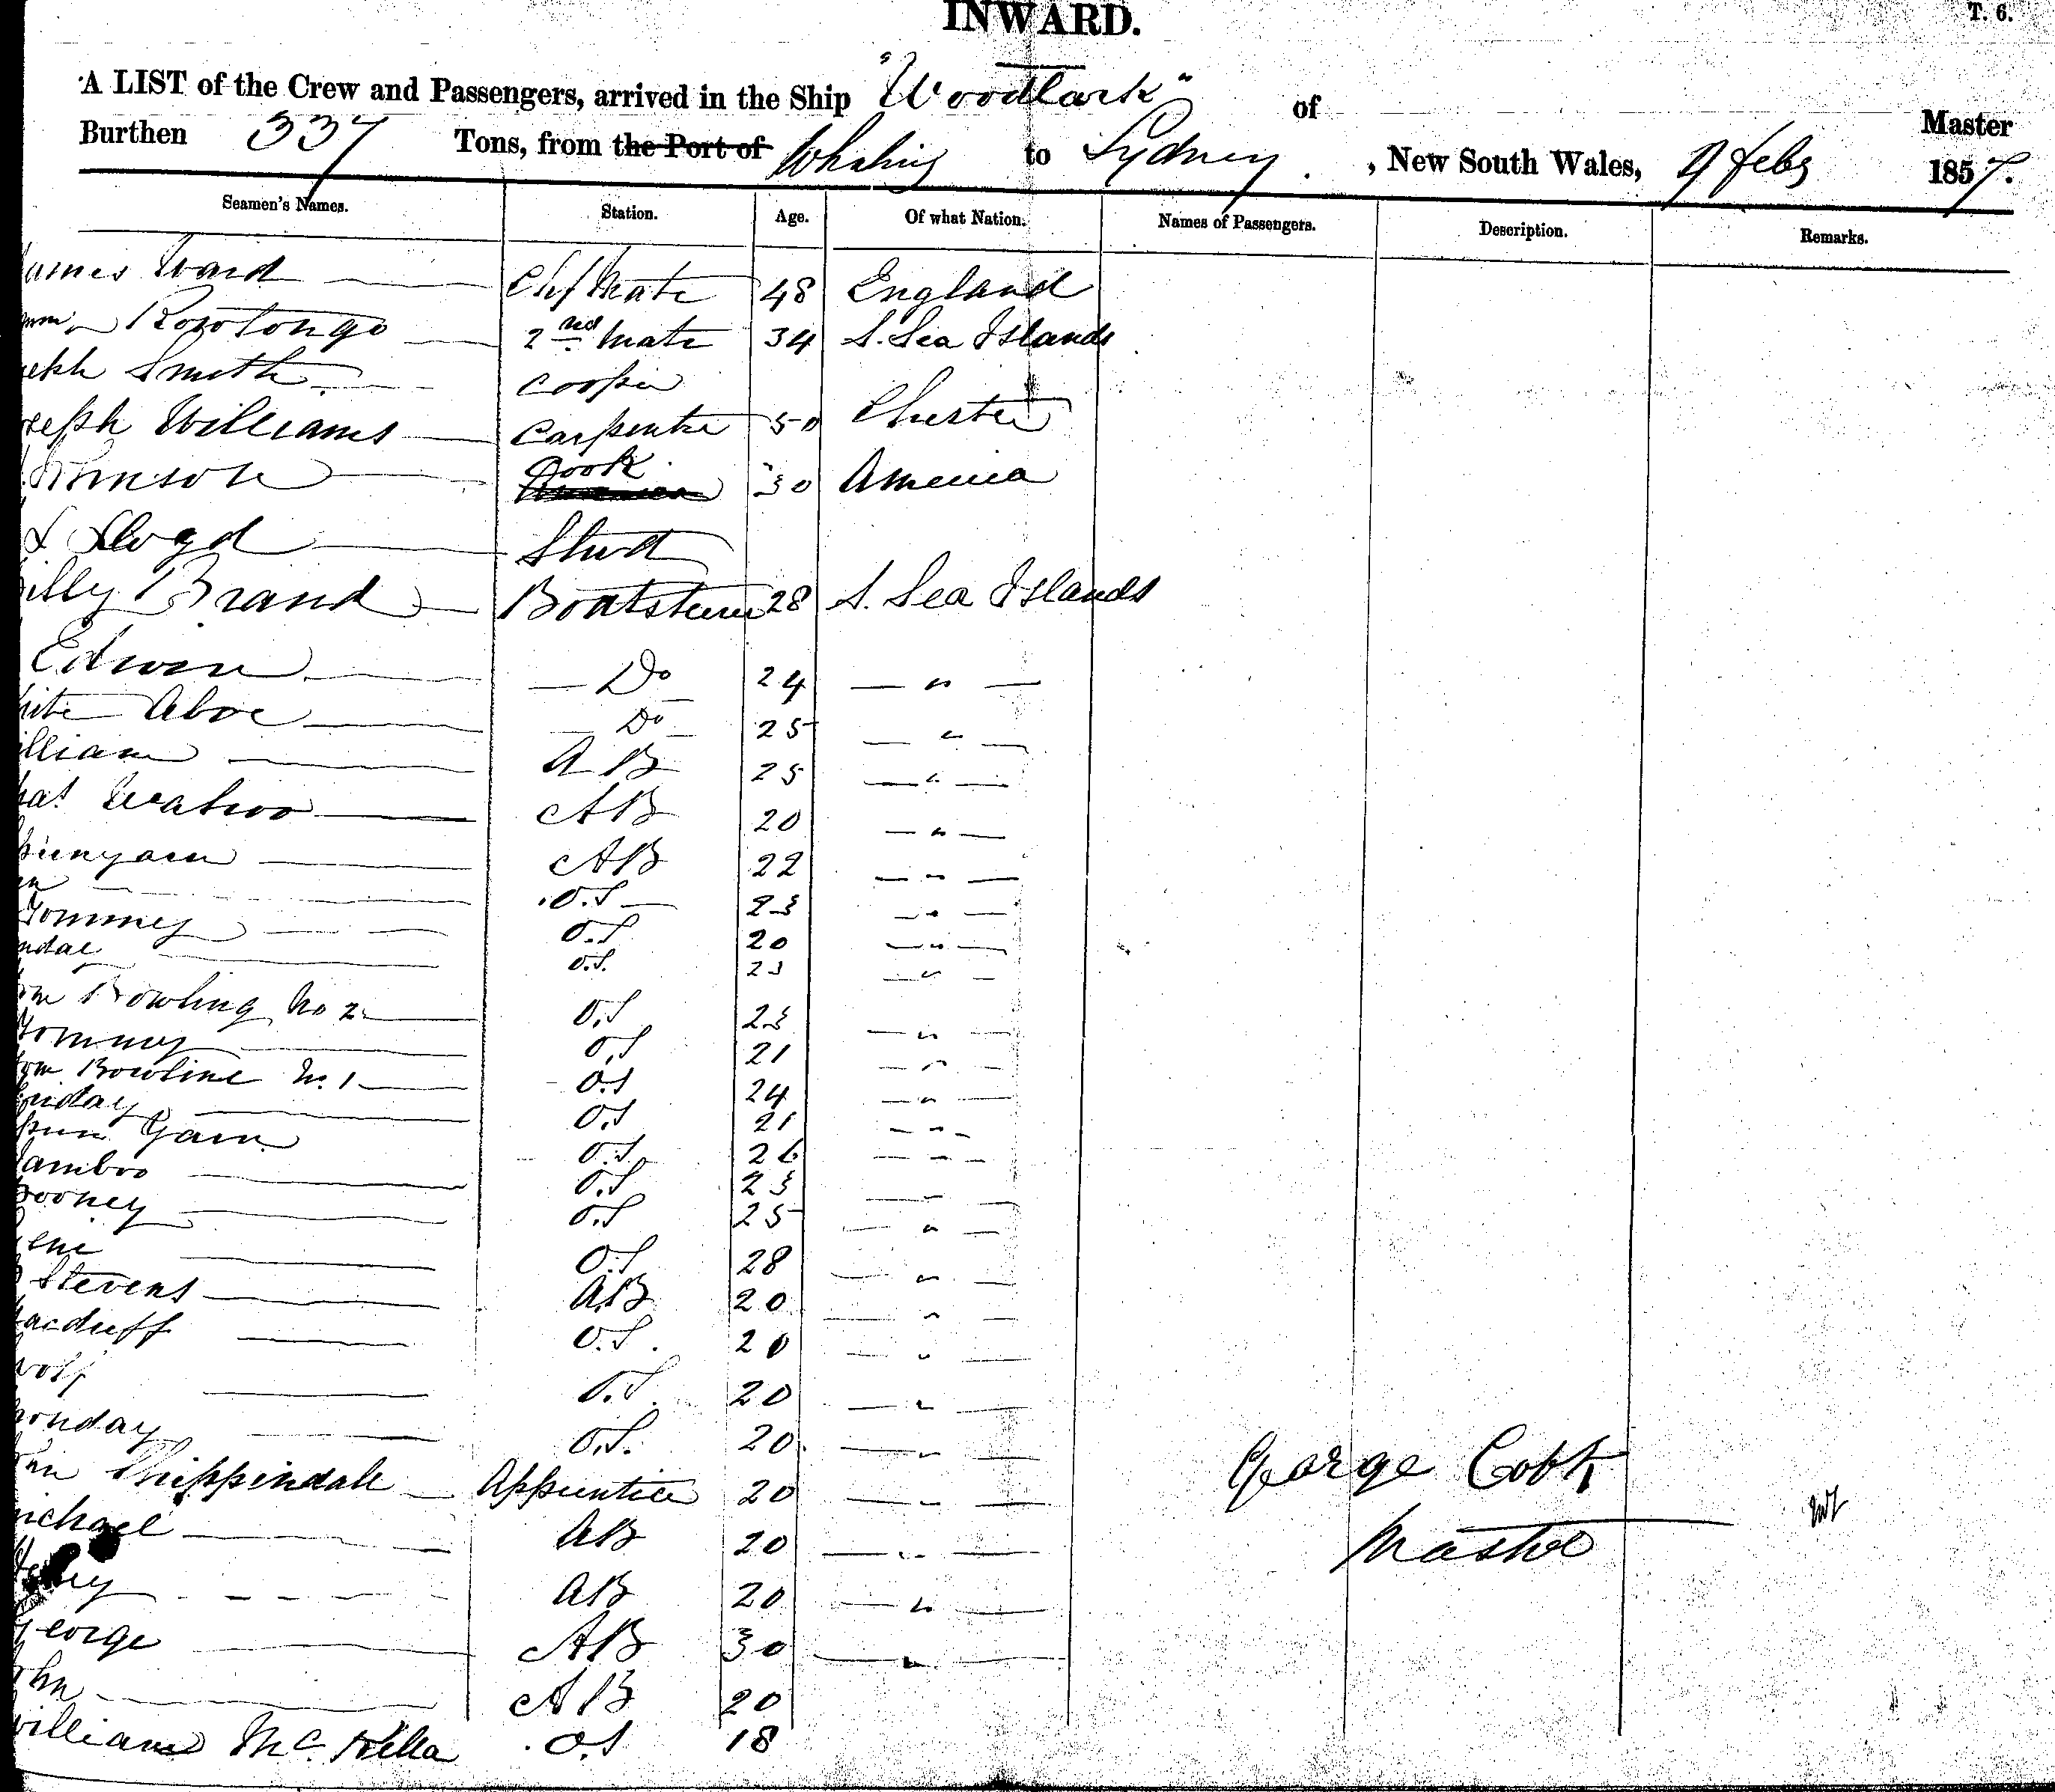 INWARD.
T. 6.
A LIST of the Crew and Passengers, arrived in the Ship "Woodlark" of Master
Burthen 337 Tons, from the Port of Whaling to Sydney, New South Wales, 9 Feby 1857.
Seamen's Names. Station. Age. Of what Nation. Names of Passengers. Description. Remarks.
ames Ward Chf Mate 48 England
Rorotongo 2nd Mate 34 S. Sea Islands
Smith Cooper
seph Williams Carpenter 50 Chester
Johnson Cook 30 America
Lloyd Stwd
illy Brand Boatsteerer 28 S. Sea Islands
Edwin Do 24 "
hite Aboe Do 25 "
illiam AB 25 "
AB 20 "
AB 22 "
O.S 23 "
Tommy O.S 20 "
ndae O.S. 23 "
om Bowling No 2 O.S 23 "
Tommy O.S 21 "
om Bowline No. 1 O.S 24 "
O.S 21 "
pun Yarn O.S. 26 "
amboo O.S 23 "
ooney O.S 25 "
ene O.S 28 "
Stevens AB 20 "
acduff O.S. 20 "
O.S. 20 "
onday O.S. 20 "
Shippindale Apprentice 20 "
ichael AB 20 "
AB 20 "
George AB 30 "
ohn AB 20
William McKella O.S 18
George Cobb
Master